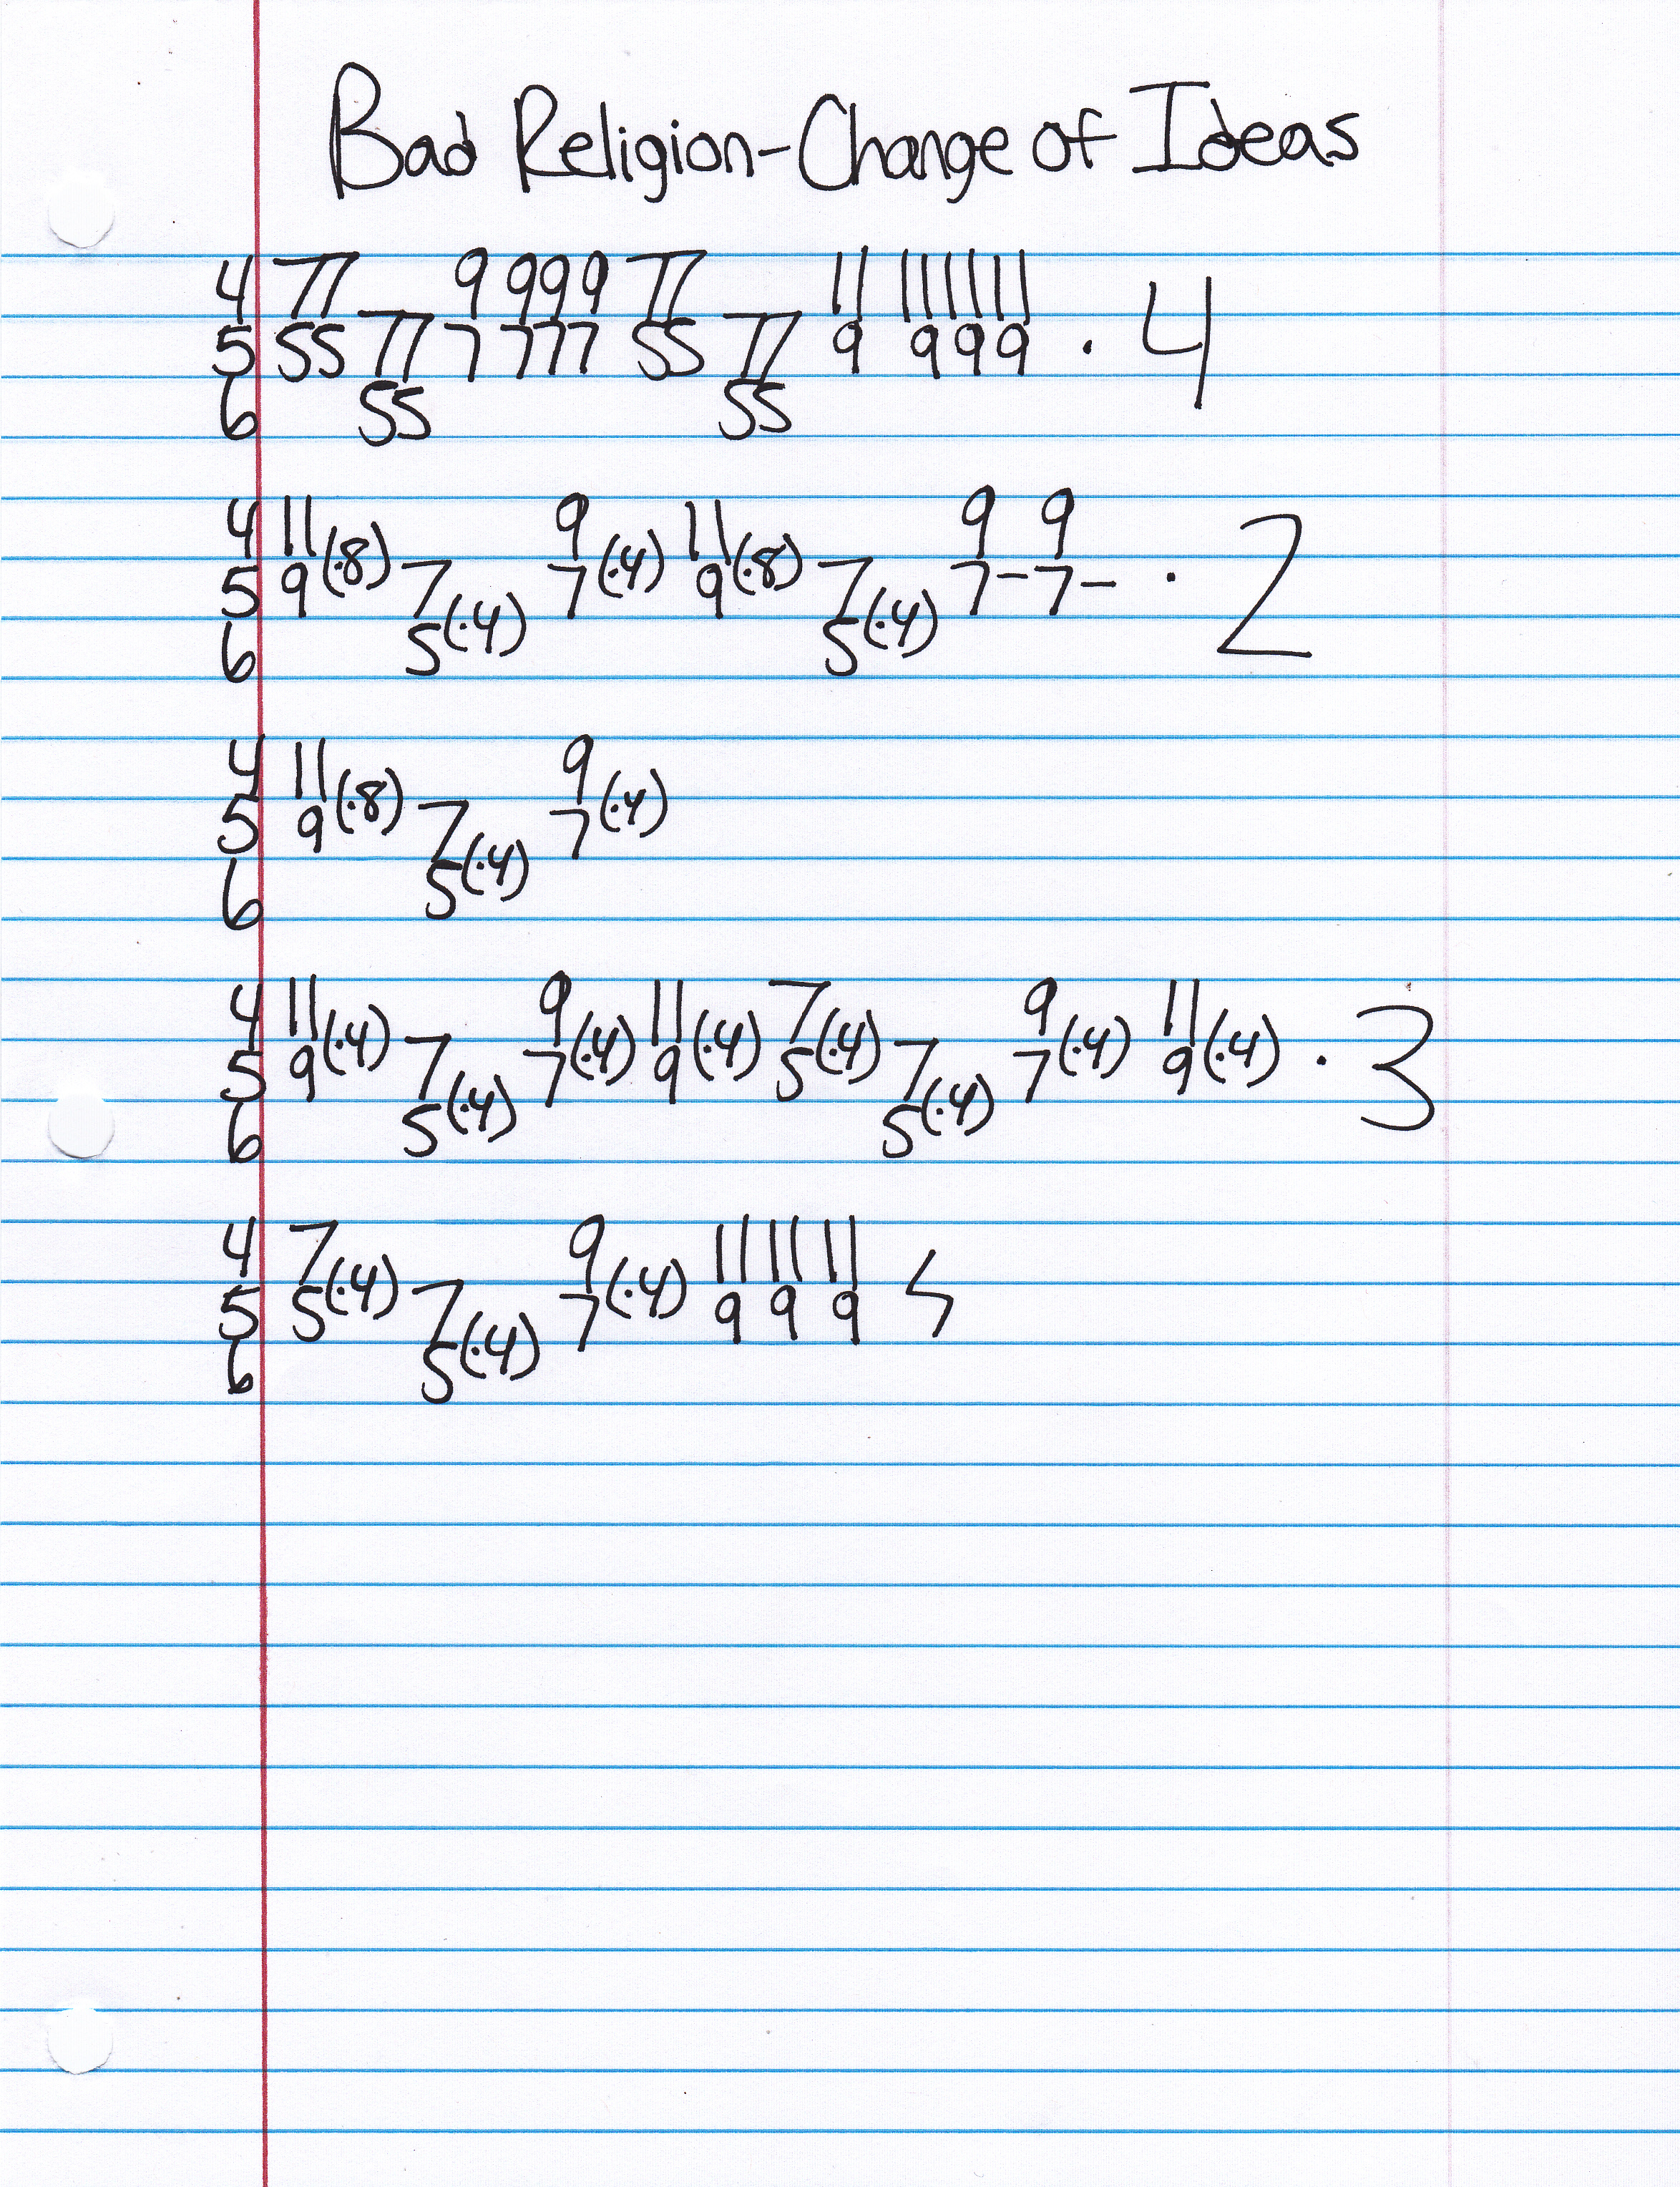 Bad Religion-Change of Ideas
4 77 9 999 77 11 11 11 11 · 4
5 55 77 7 777 55 77 9 9 9 9
6 55 55
4 11 9 11 9 9 · 2
5 9(·8) 7 7(·4) 9(·8) 7 7- 7-
6 5(·4) 5(·4)
4 11 9
5 9(·8) 7 7(·4)
6 5(·4)
4 11 9 11 7 9 11 · 3
5 9(·4) 7 7(·4) 9(·4) 5(·4) 7 7(·4) 9(·4)
6 5(·4) 5(·4)
4 7 9 11 11 11
5 5(·4) 7 7(·4) 9 9 9
6 5(·4)